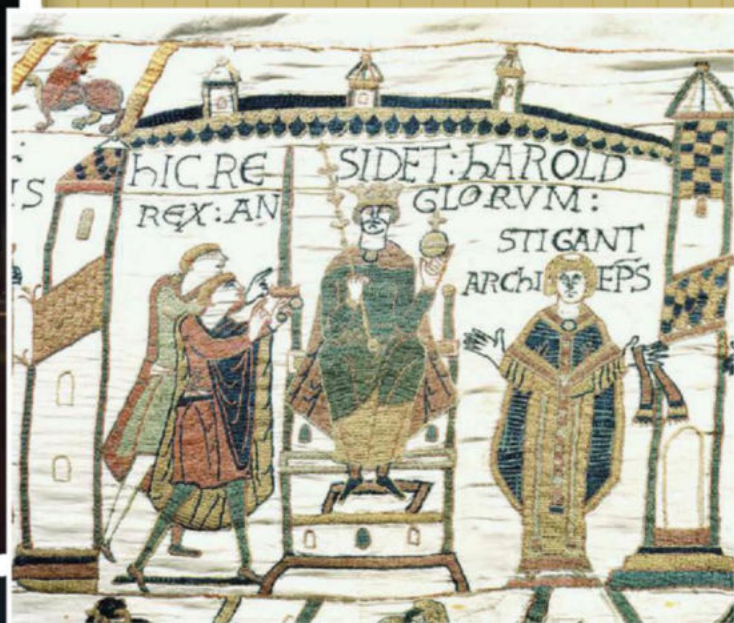 IS
hIC RE SIDET: hAROLD
REX: AN GLORVM:
STIGANT
ARChI EPS